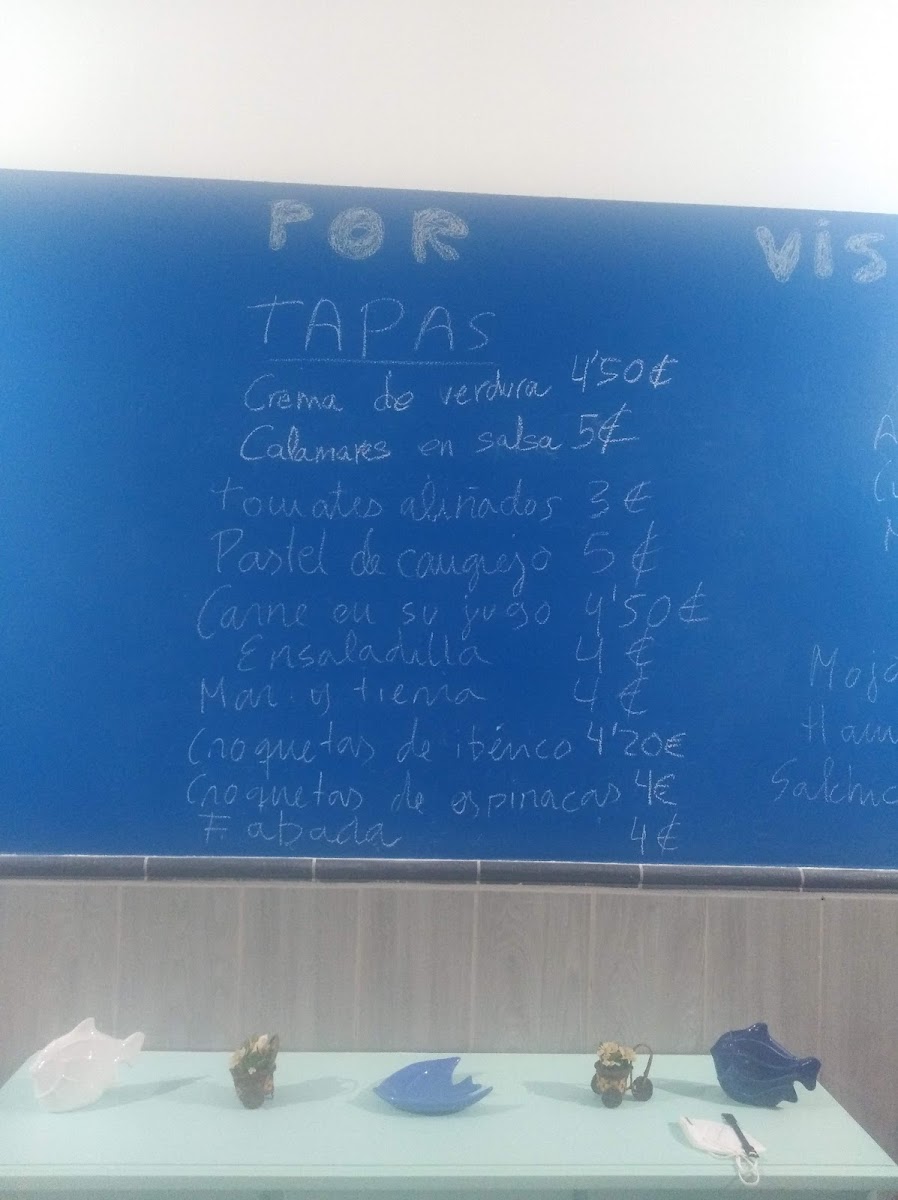 POR
VIS
TAPAS
Crema de verdura 4'50€
Calamares en salsa 5€
Tomates aliñados 3€
Pastel de cangrejo 5€
Carne en su jugo 4'50€
Ensaladilla 4€
Mar y tierra 4€
Croquetas de ibérico 4'20€
Croquetas de espinacas 4€
Fabada 4€
A
M
Moja
Ham
Salchic